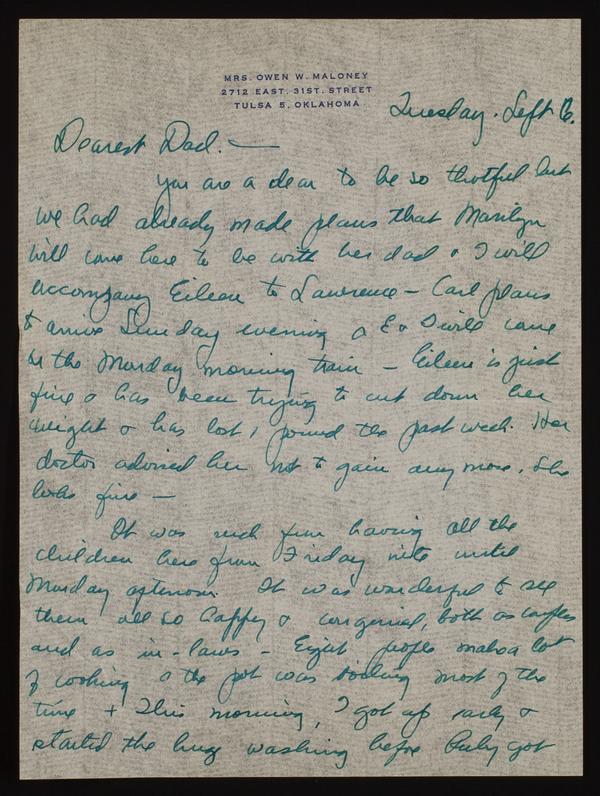 MRS. OWEN W. MALONEY
2712 EAST. 31ST. STREET
TULSA 5, OKLAHOMA
Tuesday. Sept 16.
Dearest Dad. —
You are a dear to be so thotful but
we had already made plans that Marilyn
will come here to be with her dad & I will
accompany Eileen to Lawrence — Carl plans
to arrive Sunday evening & E & I will come
on the Monday morning train — Eileen is just
fine & has been trying to cut down her
weight & has lost 1 pound the past week. Her
doctor advised her not to gain any more. She
looks fine —
It was such fun having all the
children here from Friday nite until
Monday afternoon. It was wonderful to see
them all so happy & congenial, both as couples
and as in-laws — Eight people makes a lot
of cooking & the pot was boiling most of the
time + This morning, I got up early &
started the huge washing before Ruby got